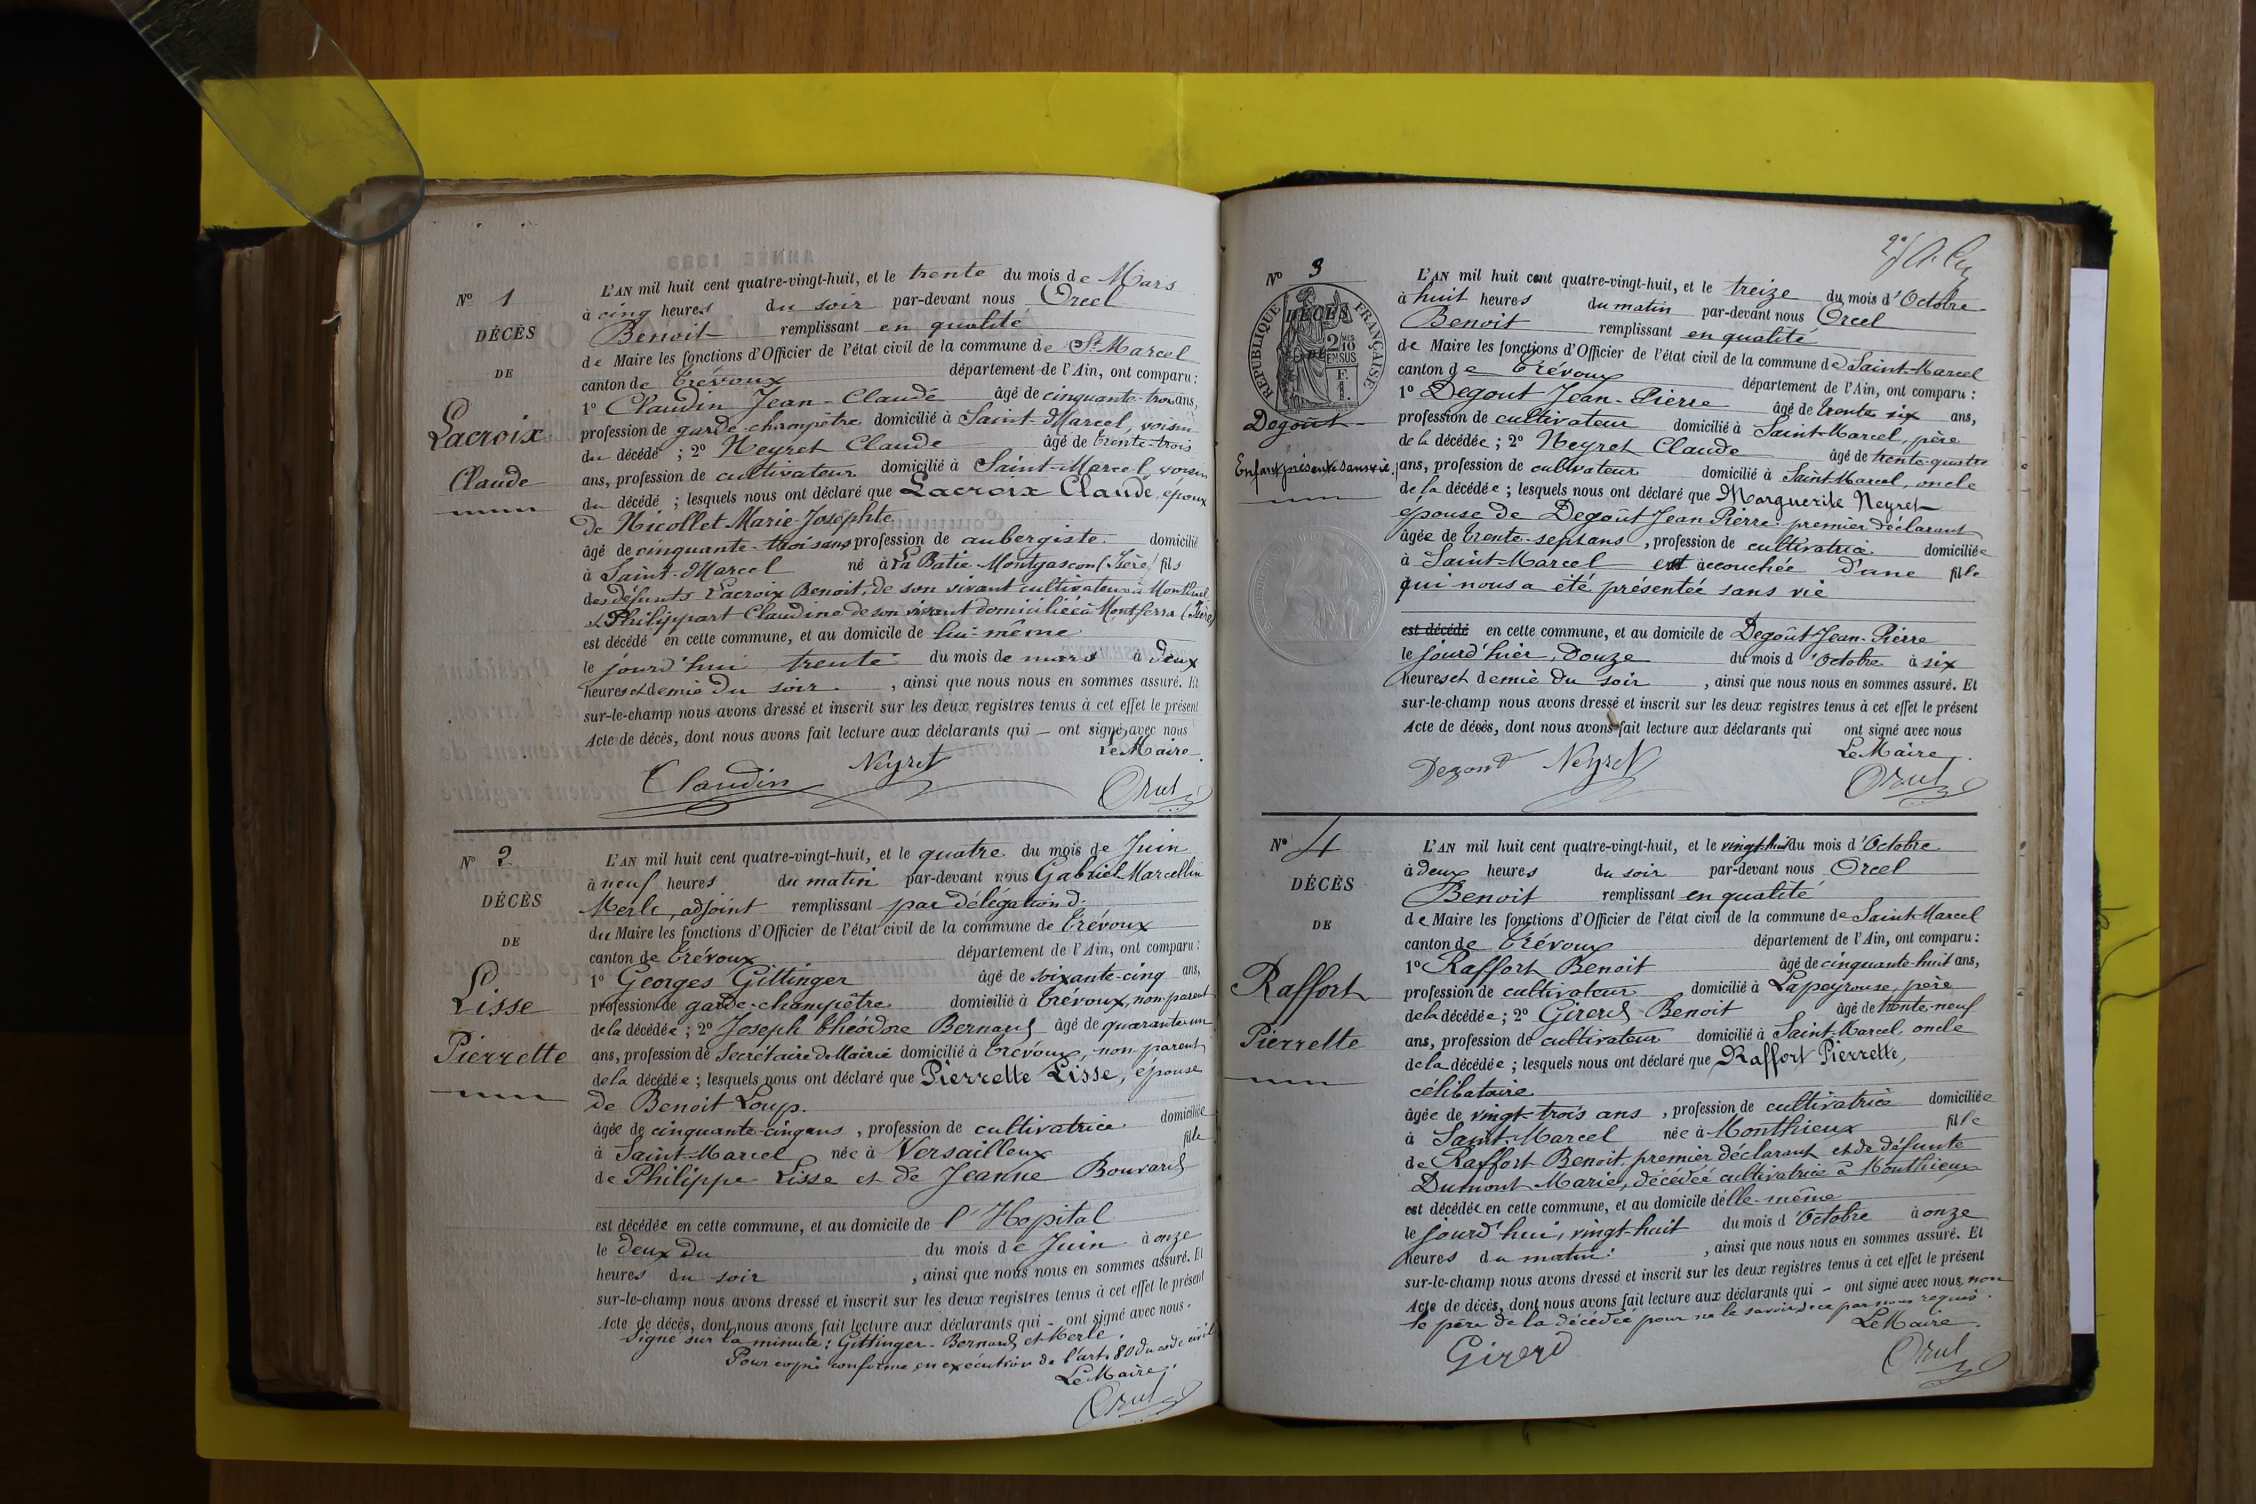 Nº 1
DÉCÈS
DE
Lacroix
Claude
L'AN mil huit cent quatre-vingt-huit, et le trente du mois de Mars
à cinq heures du soir par-devant nous Orcel
Benoit remplissant en qualité
de Maire les fonctions d'Officier de l'état civil de la commune de St Marcel
canton de Trévoux département de l'Ain, ont comparu :
1º Claudin Jean-Claude âgé de cinquante-trois ans,
profession de garde-champêtre domicilié à Saint-Marcel, voisin
du décédé ; 2º Neyret Claude âgé de trente-trois
ans, profession de cultivateur domicilié à Saint-Marcel, voisin
du décédé ; lesquels nous ont déclaré que Lacroix Claude, époux
de Nicollet Marie-Josephte
âgé de cinquante-trois ans profession de aubergiste domicilié
à Saint-Marcel né à La Batie-Montgascon (Isère) fils
des défunts Lacroix Benoit, de son vivant cultivateur à
et Philippart Claudine de son vivant domiciliée à Montferra (Isère)
est décédé en cette commune, et au domicile de lui-même
le jourd'hui trente du mois de mars à deux
heures et demie du soir , ainsi que nous nous en sommes assuré. Et
sur-le-champ nous avons dressé et inscrit sur les deux registres tenus à cet effet le présent
Acte de décès, dont nous avons fait lecture aux déclarants qui — ont signé avec nous
Le Maire.
Claudin Neyret Orcel
Nº 2
DÉCÈS
DE
Lisse
Pierrette
L'AN mil huit cent quatre-vingt-huit, et le quatre du mois de Juin
à neuf heures du matin par-devant nous Gabriel Marcellin
Merle, adjoint remplissant par délégation d.
du Maire les fonctions d'Officier de l'état civil de la commune de Trévoux
canton de Trévoux département de l'Ain, ont comparu :
1º Georges Gittinger âgé de soixante-cinq ans,
profession de garde-champêtre domicilié à Trévoux, non parent
de la décédée ; 2º Joseph Théodore Bernard âgé de quarante-un
ans, profession de Secrétaire de Mairie domicilié à Trévoux, non parent
de la décédée ; lesquels nous ont déclaré que Pierrette Lisse, épouse
de Benoit Loup.
âgée de cinquante-cinq ans , profession de cultivatrice domiciliée
à Saint-Marcel née à Versailleux fille
de Philippe Lisse et de Jeanne Bouvard
est décédée en cette commune, et au domicile de l'Hopital
le deux du du mois de Juin à onze
heures du soir , ainsi que nous nous en sommes assuré. Et
sur-le-champ nous avons dressé et inscrit sur les deux registres tenus à cet effet le présent
Acte de décès, dont nous avons fait lecture aux déclarants qui - ont signé avec nous.
Signé sur la minute : Gittinger - Bernard et Merle.
Pour copie conforme en exécution de l'art. 80 du code civil
Le Maire.
Orcel
Nº 3
RÉPUBLIQUE FRANÇAISE
DÉCÈS
DE
2/10
EN SUS
F.
1.
Degoût
Enfant présenté sans vie.
L'AN mil huit cent quatre-vingt-huit, et le treize du mois d'Octobre
à huit heures du matin par-devant nous Orcel
Benoit remplissant en qualité
de Maire les fonctions d'Officier de l'état civil de la commune de Saint-Marcel
canton de Trévoux département de l'Ain, ont comparu :
1º Degout Jean-Pierre âgé de trente six ans,
profession de cultivateur domicilié à Saint-Marcel, père
de la décédée ; 2º Neyret Claude âgé de trente-quatre
ans, profession de cultivateur domicilié à Saint-Marcel, oncle
de la décédée ; lesquels nous ont déclaré que Marguerite Neyret
épouse de Degoût Jean Pierre premier déclarant
âgée de trente-sept ans , profession de cultivatrice domiciliée
à Saint-Marcel est accouchée d'une fille
qui nous a été présentée sans vie
est décédé en cette commune, et au domicile de Degoût Jean-Pierre
le jourd'hier, douze du mois d'Octobre à six
heures et demie du soir , ainsi que nous nous en sommes assuré. Et
sur-le-champ nous avons dressé et inscrit sur les deux registres tenus à cet effet le présent
Acte de décès, dont nous avons fait lecture aux déclarants qui ont signé avec nous
Le Maire.
Degout Neyret Orcel
Nº 4
DÉCÈS
DE
Raffort
Pierrette
L'AN mil huit cent quatre-vingt-huit, et le vingt-huit du mois d'Octobre
à deux heures du soir par-devant nous Orcel
Benoit remplissant en qualité
de Maire les fonctions d'Officier de l'état civil de la commune de Saint-Marcel
canton de Trévoux département de l'Ain, ont comparu :
1º Raffort Benoit âgé de cinquante-huit ans,
profession de cultivateur domicilié à Lapeyrouse, père
de la décédée ; 2º Girerd Benoit âgé de trente-neuf
ans, profession de cultivateur domicilié à Saint-Marcel, oncle
de la décédée ; lesquels nous ont déclaré que Raffort Pierrette,
célibataire
âgée de vingt-trois ans , profession de cultivatrice domiciliée
à Saint-Marcel née à Monthieux fille
de Raffort Benoit, premier déclarant et de défunte
Dumont Marie, décédée cultivatrice à Monthieux
est décédée en cette commune, et au domicile d'elle-même
le jourd'hui, vingt-huit du mois d'Octobre à onze
heures du matin , ainsi que nous nous en sommes assuré. Et
sur-le-champ nous avons dressé et inscrit sur les deux registres tenus à cet effet le présent
Acte de décès, dont nous avons fait lecture aux déclarants qui - ont signé avec nous non
le père de la décédée pour ne le savoir de ce par nous requis.
Le Maire.
Girerd Orcel